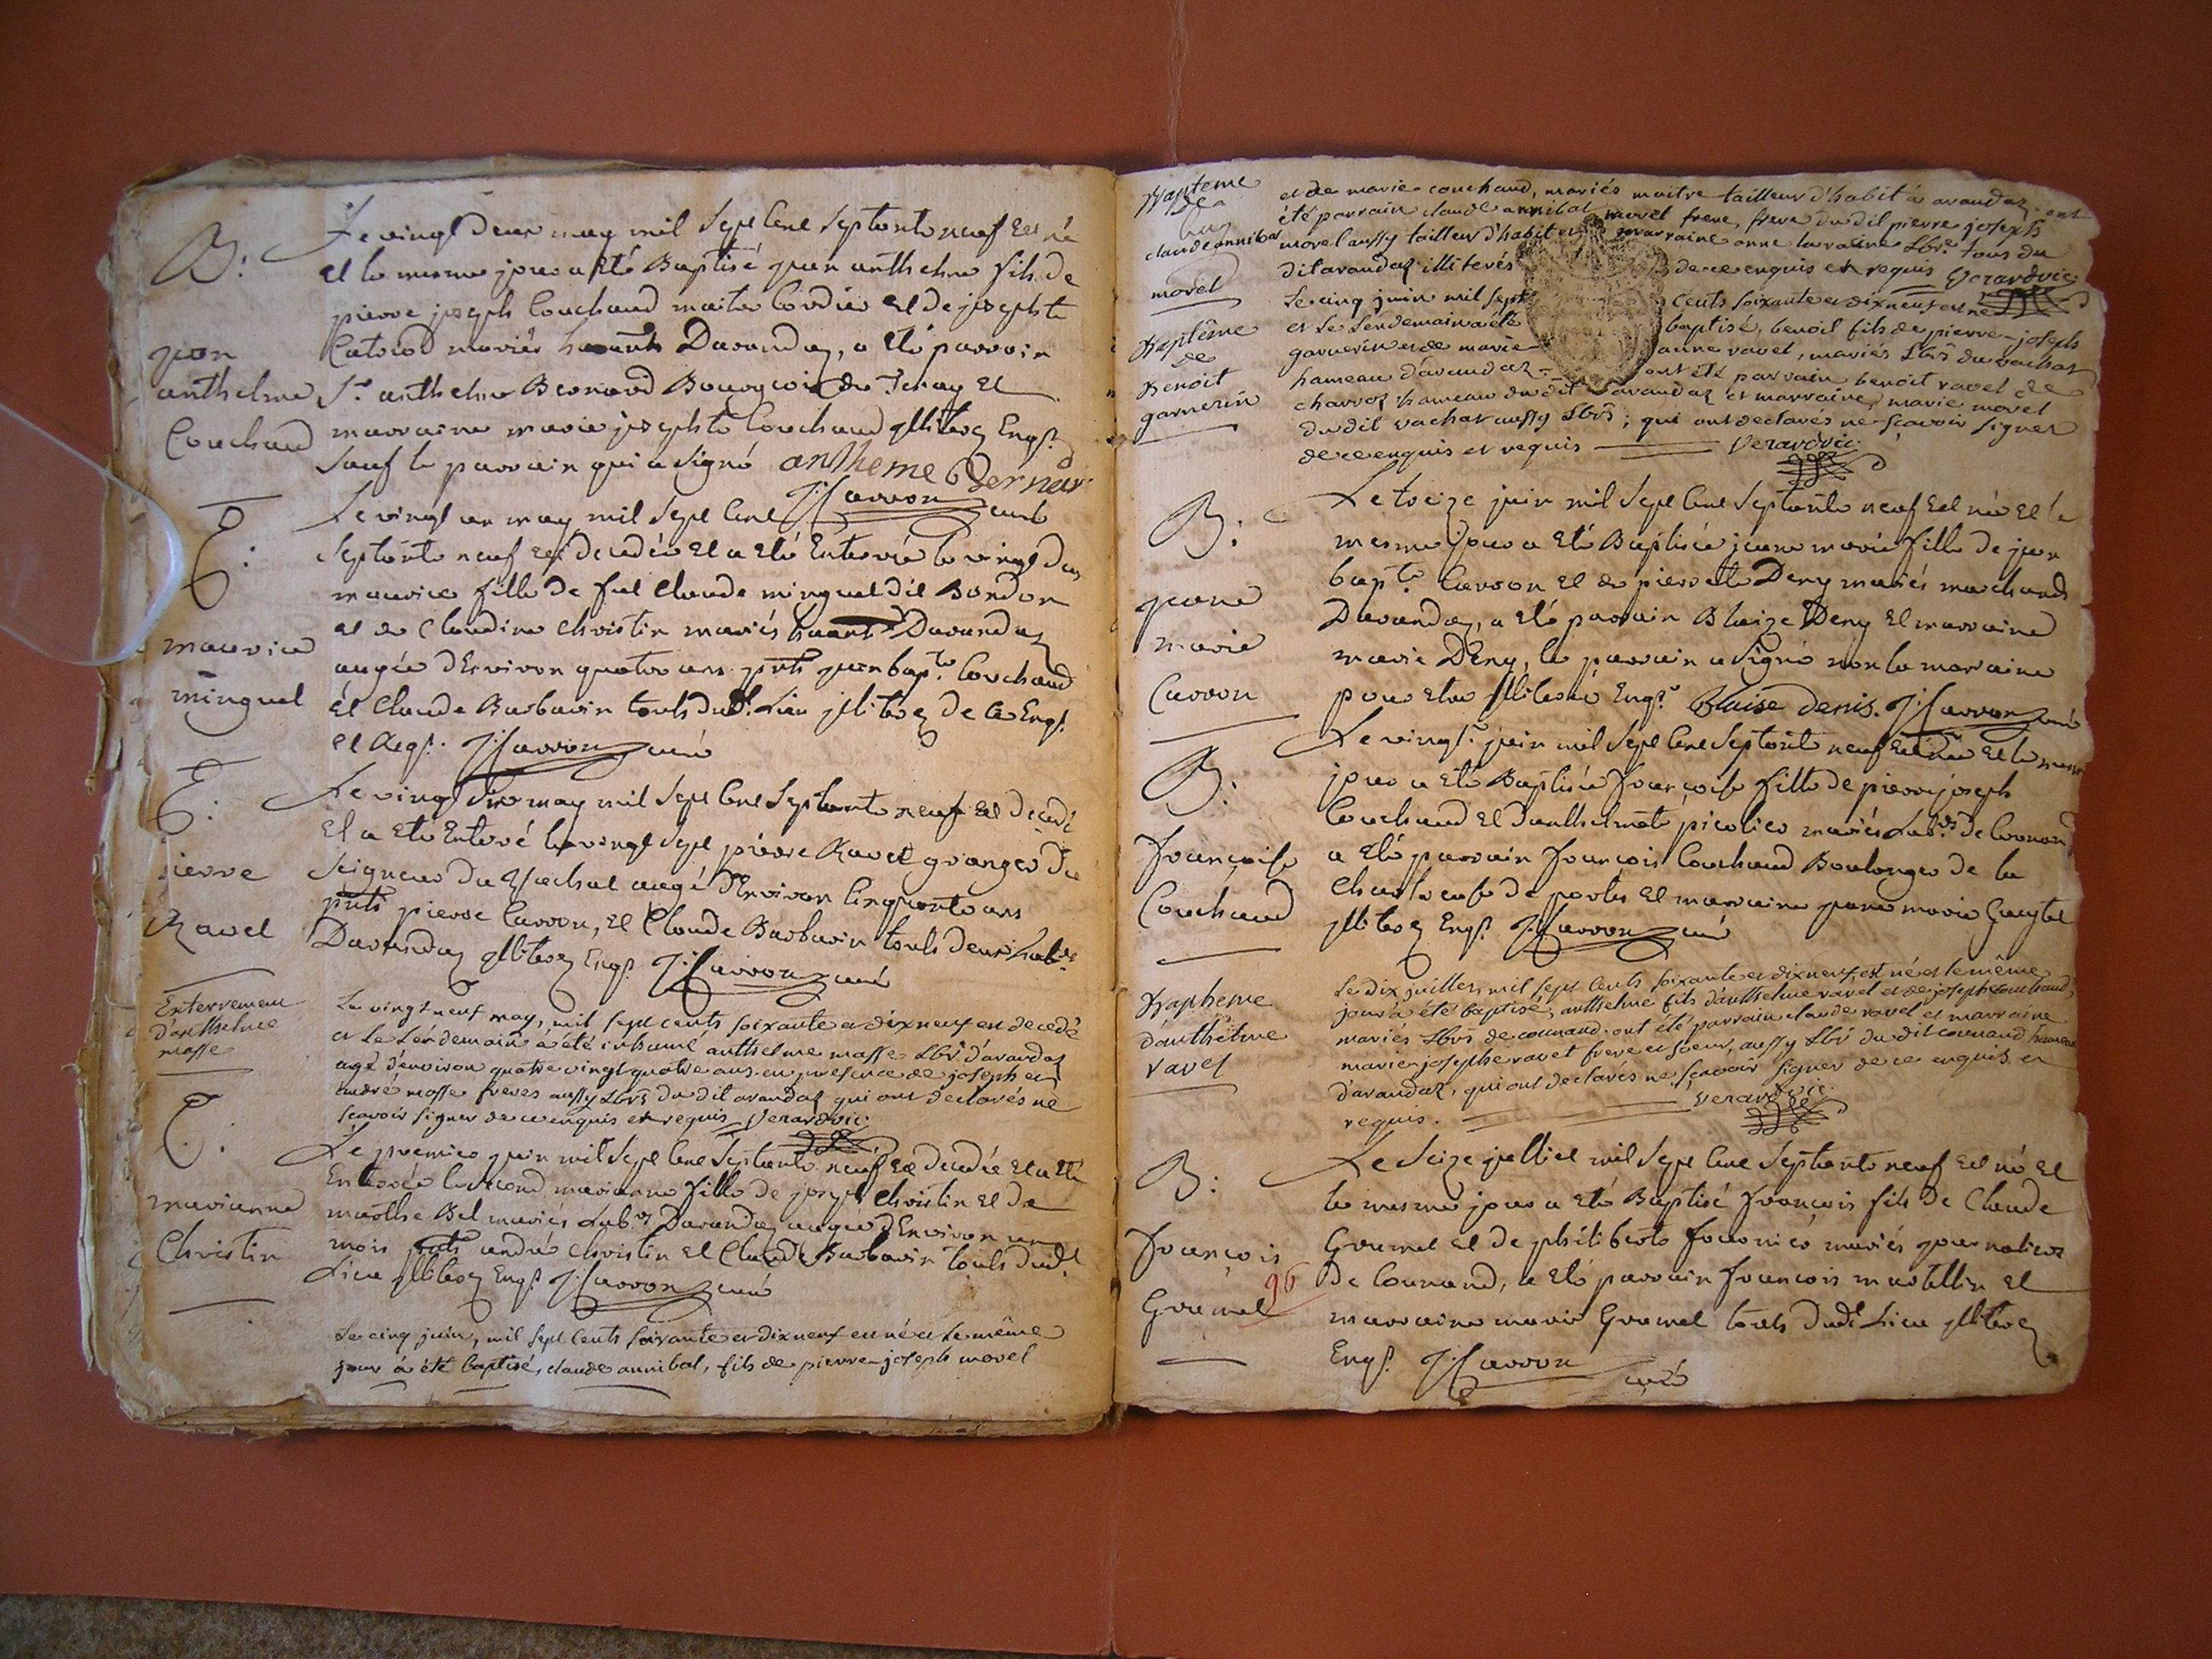 B:
jean
anthelme
Couchaud
Le vingt deux may mil sept cent septante neuf est né
et le mesme jour a eté Baptisé jean anthelme fils de
pierre joseph Couchaud maitre Cordier et de josephte
mariés Davandaz, a eté parrain
Sr anthelme Bernard Bourgeois de et
marraine marie josephte Couchaud illiterez Enqs
sauf le parrain qui a signé antheme Bernar
J: Carron curé
E:
maurice
minguet
Le vingt un may mil sept cent
septante neuf est decedée et a eté Enterrée le vingt deux
maurice fille de feu Claude minguet dit Bondon
et de Claudine Christin mariés Davandaz
augée dEnviron quatre ans pnts jean bapte Couchaud
et Claude Barbarin touts dudt Lieu illiterez de ce Enqs
et Reqs. J: Carron curé
E:
pierre
Ravet
Le vingt six may mil sept cent septante neuf est decedé
et a eté Enterré le vingt sept pierre Ravet granger du
seigneur du Vachat augé dEnviron Cinquante ans
pnts pierre Carron, et Claude Barbarin touts deux Labrs
Davandaz illiterez Enqs J: Carron curé
Enterrement
d'anthelme
masse
Le vingt neuf may, mil sept cents soixante et dix neuf est decedé
et le Lendemain a été inhumé anthelme masse Lbr d'arandaz
agé d'environ quatre vingt quatre ans. en presence de joseph et
andré masse freres aussy Lbrs du dit arandaz qui ont declarés ne
scavoir signer de ce enquis et requis Verard vic:
E:
marianne
Christin
Le premier juin mil sept cent septante neuf est decedée et a eté
Enterrée le second marianne fille de joseph Christin et de
marthe Bel mariés Labrs Davandaz augée dEnviron un
mois pnts andré Christin et Claude Barbarin touts dudt
Lieu illiterez Enqs J: Carron curé
Le cinq juin, mil sept cents soixante et dix neuf est né et le même
jour à été baptisé, claude annibal, fils de pierre-joseph morel
Bapteme
de
claude annibal
morel
et de marie couchaud, mariés maitre tailleur d'habit à arandaz. ont
été parrain claude annibal morel frere, frere du dit pierre joseph
morel aussy tailleur d'habit et marraine anne Lbre tous du
dit arandaz illiterés de ce enquis et requis Verard vic:
Baptême
de
Benoit
garnerin
Le cinq juin mil sept cents soixante et dix neuf est né
et le Lendemain a été baptisé, benoit fils de pierre-joseph
garnerin et de marie anne ravet, mariés Lbrs du vachat
hameau d'arandaz. ont été parrain benoit ravet de
charroz hameau du dit arandaz et marraine, marie morel
du dit vachat aussy Lbrs; qui ont declarés ne scavoir signer
de ce enquis et requis Verard vic:
B:
jeane
marie
Carron
Le treize juin mil sept cent septante neuf est née et le
mesme jour a eté Baptisée jeane marie fille de jean
bapte Carron et de pierrete Deny mariés marchands
Davandaz, a eté parrain Blaize Deny et marraine
marie Deny, le parrain a signé non la marraine
pour etre illiterée Enqse Blaise denis. J: Carron curé
B:
françoise
Couchaud
Le vingt juin mil sept cent septante neuf est née et le mesme
jour a eté Baptisée françoise fille de pierre joseph
Couchaud et danthelmete picolier mariés Labrs de Cournand
a eté parrain françois Couchaud Boulanger de la
Chartreuse de portes et marraine jeane marie
illiterez Enqs J: Carron curé
Bapheme
d'anthelme
ravet
Le dix juillet, mil sept cents soixante et dix neuf, est né et le même
jour à été baptisé, anthelme fils d'anthelme ravet et de josephe couchaud,
mariés Lbrs de counand. ont été parrain claude ravet et marraine
marie-josephe ravet frere et soeur, aussy Lbrs du dit counand hameau
d'arandaz, qui ont declarés ne scavoir signer de ce enquis et
requis. Verard vic:
B:
françois
Gramel
96
Le seize julliet mil sept cent septante neuf est né et
le mesme jour a eté Baptisé françois fils de Claude
Gramel et de philiberte fournier mariés journaliers
de Counand, a eté parrain françois martellin et
marraine marie Gramel touts dudt Lieu illiterez
Enqs J: Carron
curé